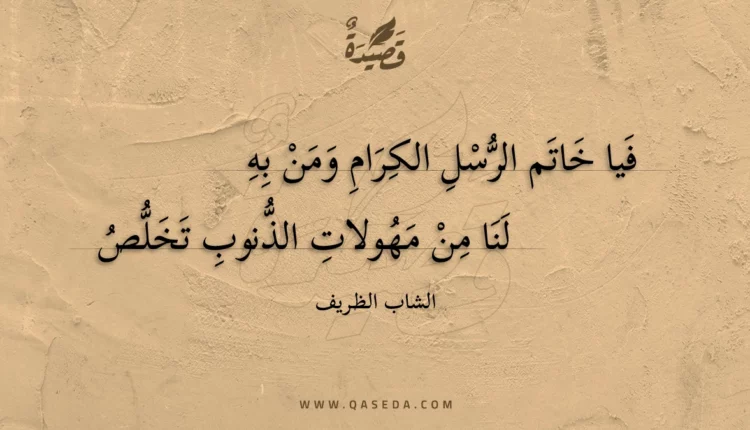 قَصِيدَةٌ
فَيا خَاتَم الرُّسْلِ الكِرَامِ وَمَنْ بِهِ
لَنَا مِنْ مَهُولاتِ الذُّنوبِ تَخَلُّصُ
الشاب الظريف
WWW.QASEDA.COM